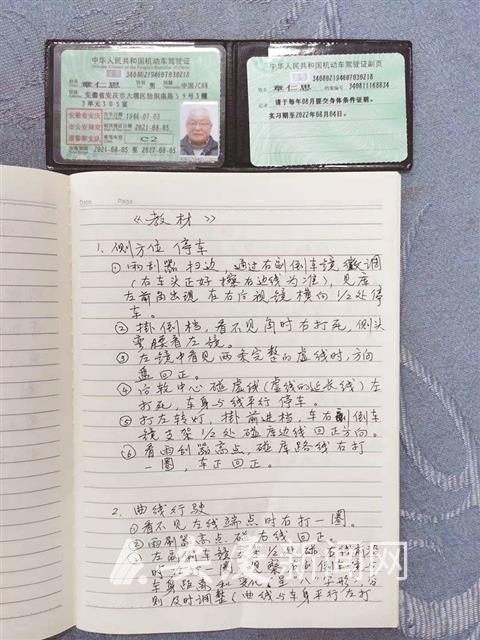 中华人民共和国机动车驾驶证
姓名 章仁思
国籍 中国/CHN
住址 安徽省安庆市大观区
3单元305室
安徽省安庆
市公安局交
通警察支队
1946-07-03
2021-08-05
C2
2021-08-05 至 2027-08-05
中华人民共和国机动车驾驶证副页
证号 340802194607030218
姓名 章仁思
档案编号 340811168834
请于每年08月提交身体条件证明。
实习期至2022年08月04日。
Date Page
《教材》
1. 侧方位停车
① 雨刮器扫边，通过右副倒车镜微调
(右车头正好擦右边线为准)，见库
左前角出现在右后视镜横向1/2处停
车。
② 掛倒档，看不见角时右打死，侧头
弯腰看左镜。
③ 左镜中看见两条完整的虚线时，方向
盘回正。
④ 后轮中心碰虚线(虚线的延长线)左
打死，车身与线平行停车。
⑤ 打左转灯，掛前进档，车右副倒车
镜支架1/2处碰库边线回正方向。
⑥ 看雨刮器高点，碰库路线右打
一圈，车正回正。
2. 曲线行驶
① 看不见左线端点时右打一圈。
② 雨刮器高点碰右线回正。
③ 左副倒车镜
时左打一圈
车身距离和
则及时调整(曲线与车身平行左打
安庆新闻网